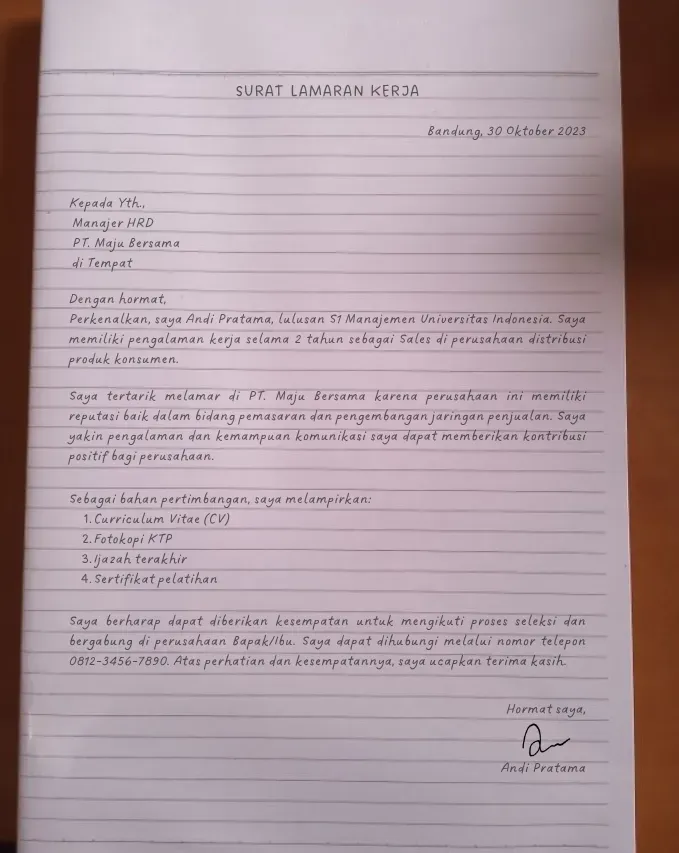 SURAT LAMARAN KERJA
Bandung, 30 Oktober 2023
Kepada Yth.,
Manajer HRD
PT. Maju Bersama
di Tempat
Dengan hormat,
Perkenalkan, saya Andi Pratama, lulusan S1 Manajemen Universitas Indonesia. Saya
memiliki pengalaman kerja selama 2 tahun sebagai Sales di perusahaan distribusi
produk konsumen.
Saya tertarik melamar di PT. Maju Bersama karena perusahaan ini memiliki
reputasi baik dalam bidang pemasaran dan pengembangan jaringan penjualan. Saya
yakin pengalaman dan kemampuan komunikasi saya dapat memberikan kontribusi
positif bagi perusahaan.
Sebagai bahan pertimbangan, saya melampirkan:
1. Curriculum Vitae (CV)
2. Fotokopi KTP
3. Ijazah terakhir
4. Sertifikat pelatihan
Saya berharap dapat diberikan kesempatan untuk mengikuti proses seleksi dan
bergabung di perusahaan Bapak/Ibu. Saya dapat dihubungi melalui nomor telepon
0812-3456-7890. Atas perhatian dan kesempatannya, saya ucapkan terima kasih.
Hormat saya,
Andi Pratama